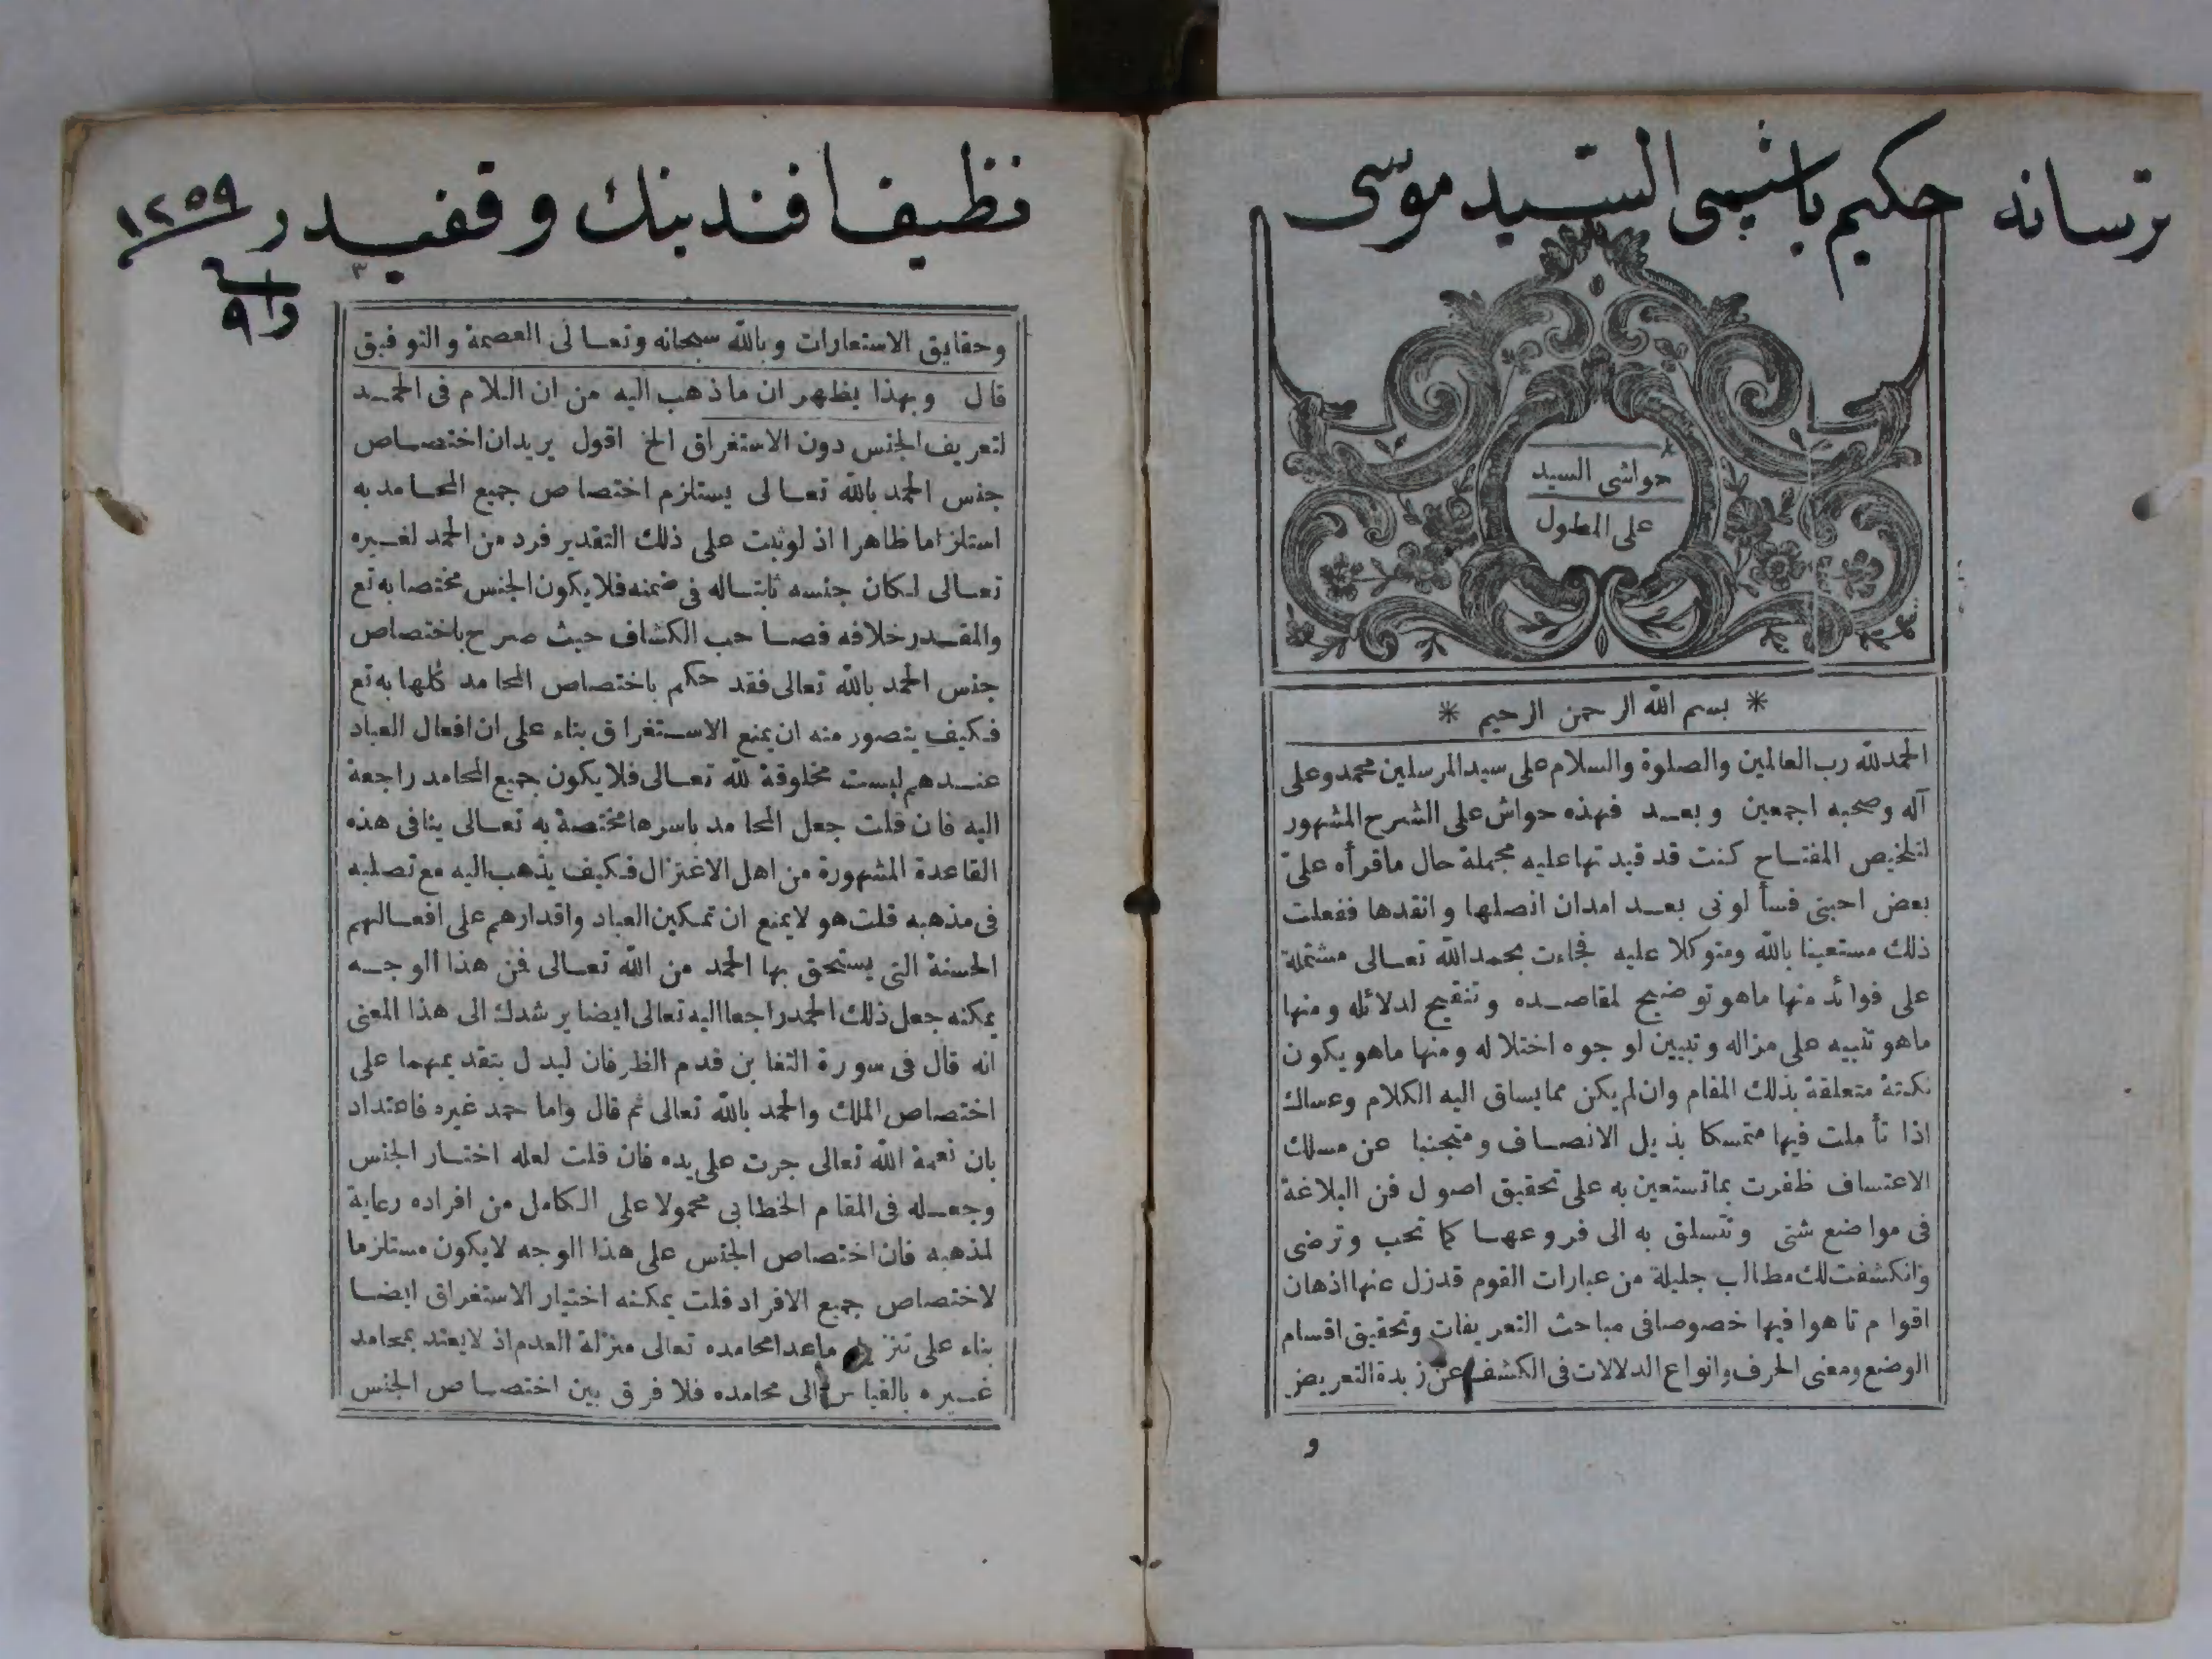 ترسانه حكيم باشيسى السّيد موسى
حواشى السيد
على المطول
* بسم الله الرحمن الرحيم *
الحمدلله رب العالمين والصلوة والسلام على سيد المرسلين محمد وعلى
آله وصحبه اجمعين وبعد فهذه حواش على الشرح المشهور
لتلخيص المفتاح كنت قد قيدتها عليه مجملة حال ماقرأه علىّ
بعض احبتى فسألونى بعد امد ان افصلها وانقدها ففعلت
ذلك مستعينا بالله ومتوكلا عليه فجاءت بحمدالله تعالى مشتملة
على فوائد منها ماهو توضيح لمقاصده وتنقيح لدلائله ومنها
ماهو تنبيه على مزاله وتبيين لوجوه اختلاله ومنها ماهو يكون
نكتة متعلقة بذلك المقام وان لم يكن مما يساق اليه الكلام وعساك
اذا تأملت فيها متمسكا بذيل الانصاف ومتجنبا عن مسلك
الاعتساف ظفرت بما تستعين به على تحقيق اصول فن البلاغة
فى مواضع شتى وتتسلق به الى فروعها كما تحب وترضى
وانكشفت لك مطالب جليلة من عبارات القوم قدزل عنها اذهان
اقوام تاهوا فيها خصوصا فى مباحث التعريفات وتحقيق اقسام
الوضع ومعنى الحرف وانواع الدلالات فى الكشف عن زبدة التعريض
و
نظيف افندينك وقفيدر ١٢٥٩
٣
وحقايق الاستعارات وبالله سبحانه وتعالى العصمة والتوفيق
قال وبهذا يظهر ان ماذهب اليه من ان اللام فى الحمد
لتعريف الجنس دون الاستغراق الخ اقول يريد ان اختصاص
جنس الحمد بالله تعالى يستلزم اختصاص جميع المحامد به
استلزاما ظاهرا اذ لوثبت على ذلك التقدير فرد من الحمد لغيره
تعالى لكان جنسه ثابتاله فى ضمنه فلا يكون الجنس مختصا به تع
والمقدر خلافه فصاحب الكشاف حيث صرح باختصاص
جنس الحمد بالله تعالى فقد حكم باختصاص المحامد كلها به تع
فكيف يتصور منه ان يمنع الاستغراق بناء على ان افعال العباد
عندهم ليست مخلوقة لله تعالى فلا يكون جميع المحامد راجعة
اليه فان قلت جعل المحامد باسرها مختصة به تعالى ينافى هذه
القاعدة المشهورة من اهل الاعتزال فكيف يذهب اليه مع تصلبه
فى مذهبه قلت هو لايمنع ان تمكين العباد واقدارهم على افعالهم
الحسنة التى يستحق بها الحمد من الله تعالى فمن هذا الوجه
يمكنه جعل ذلك الحمد راجعا اليه تعالى ايضا يرشدك الى هذا المعنى
انه قال فى سورة التغابن قدم الظرفان ليدل بتقديمهما على
اختصاص الملك والحمد بالله تعالى ثم قال واما حمد غيره فاعتداد
بان نعمة الله تعالى جرت على يده فان قلت لعله اختار الجنس
وجعله فى المقام الخطابى محمولا على الكامل من افراده رعاية
لمذهبه فان اختصاص الجنس على هذا الوجه لايكون مستلزما
لاختصاص جميع الافراد قلت يمكنه اختيار الاستغراق ايضا
بناء على تنزيل ماعدا محامده تعالى منزلة العدم اذ لايعتد بمحامد
غيره بالقياس الى محامده فلا فرق بين اختصاص الجنس